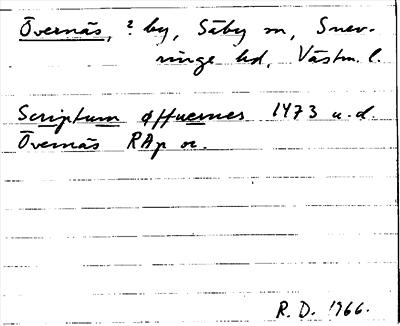 Övernäs, ? by, Säby sn, Snev-
ringe hd, Västm. l.
Scriptum øffuernes 1473 u.d.
Övernäs RAp or.
R.D. 1966.